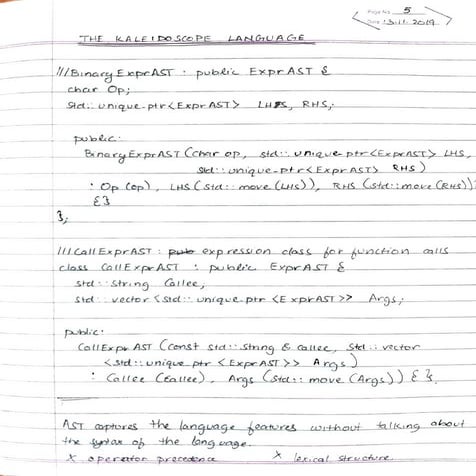 Page No. 5
Date 13.11.2019
THE KALEIDOSCOPE LANGUAGE
///BinaryExprAST : public ExprAST {
char Op;
std::unique-ptr<ExprAST> LHS, RHS;
public:
BinaryExprAST (char op, std::unique-ptr<ExprAST> LHS,
std::unique-ptr<ExprAST> RHS)
: Op (op), LHS (std::move(LHS)), RHS (std::move(RHS))
{ }
};
///CallExprAST : expression class for function calls
class CallExprAST : public ExprAST {
std::string Callee,
std::vector <std::unique-ptr <ExprAST>> Args;
public:
CallExprAST (const std::string & callee, std::vector
<std::unique-ptr <ExprAST>> Args)
: Callee (callee), Args (std::move (Args)) { };
AST captures the language features without talking about
the syntax of the language.
x operator precedence x lexical structure.